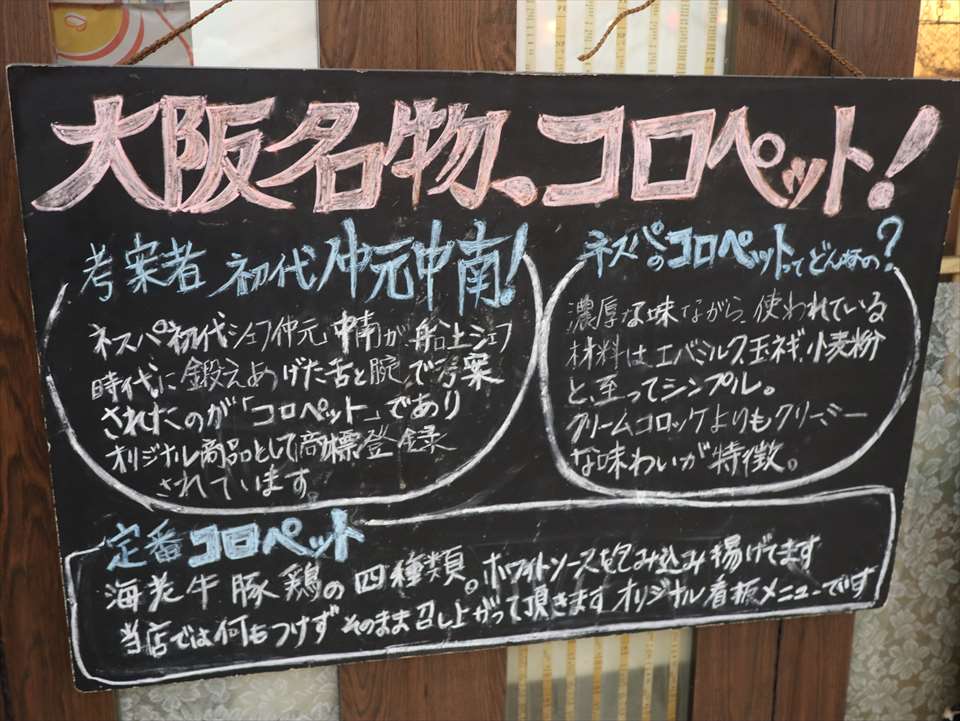 大阪名物、コロペット!
考案者 初代 仲元中南!
ネスパ初代シェフ仲元 中南が船上シェフ
時代に鍛えあげた舌と腕で考案
されたのが「コロペット」であり
オリジナル商品として商標登録
されています。
ネスパのコロペットってどんなの?
濃厚な味ながら、使われている
材料はエバミルク、玉ネギ、小麦粉
と、至ってシンプル。
クリームコロッケよりもクリーミー
な味わいが特徴。
定番コロペット
海老牛豚鶏の四種類。ホワイトソースを包み込み揚げてます
当店では何もつけずそのまま召し上がって頂きますオリジナル看板メニューです